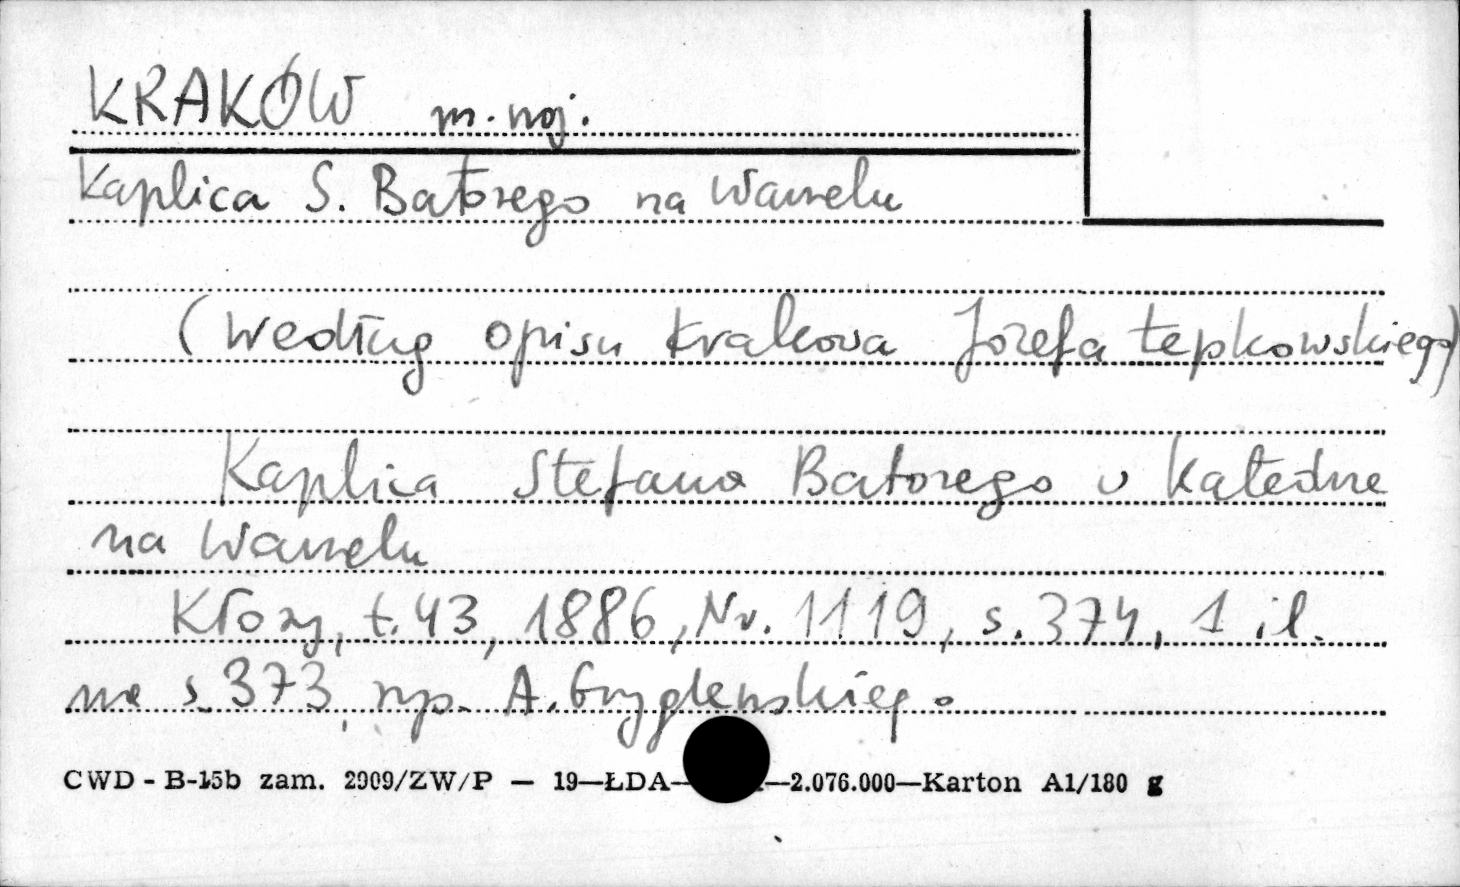 KRAKÓW m. woj.
Kaplica S. Batorego na Wawelu
(Według opisu Krakowa Józefa Łepkowskiego)
Kaplica Stefana Batorego w Katedrze
na Wawelu
Kłosy, t. 43, 1886, Nr. 1119, s. 374, 1 il.
na s. 373, rys. A. Gryglewskiego
CWD - B-15b zam. 2909/ZW/P — 19—ŁDA— —2.076.000—Karton A1/180 g